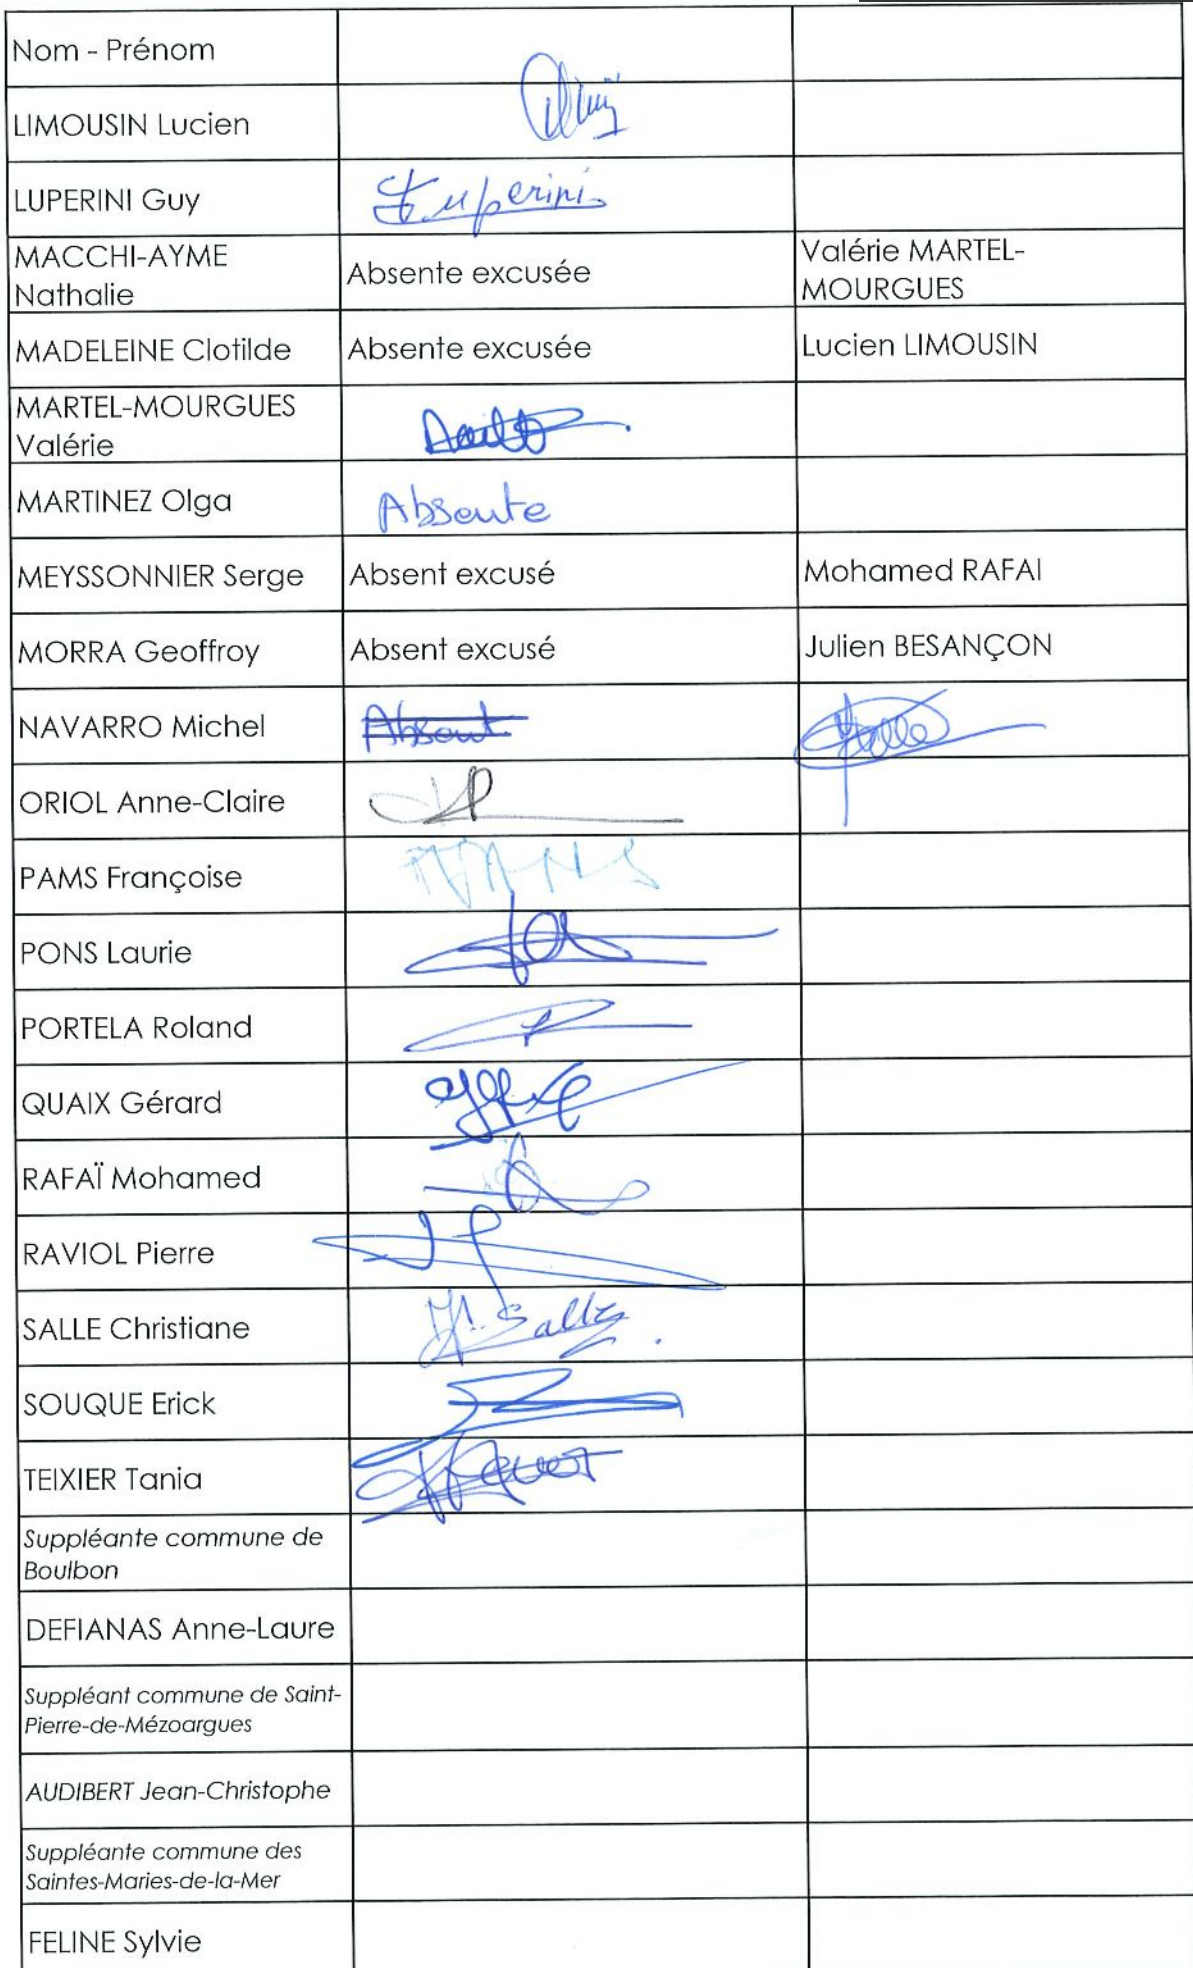 Nom - Prénom
LIMOUSIN Lucien
LUPERINI Guy
Luperini
MACCHI-AYME
Nathalie
Absente excusée
Valérie MARTEL-
MOURGUES
MADELEINE Clotilde
Absente excusée
Lucien LIMOUSIN
MARTEL-MOURGUES
Valérie
MARTINEZ Olga
Absente
MEYSSONNIER Serge
Absent excusé
Mohamed RAFAI
MORRA Geoffroy
Absent excusé
Julien BESANÇON
NAVARRO Michel
Absent
ORIOL Anne-Claire
PAMS Françoise
PAMS
PONS Laurie
PORTELA Roland
QUAIX Gérard
RAFAÏ Mohamed
RAVIOL Pierre
SALLE Christiane
Salle
SOUQUE Erick
TEIXIER Tania
Suppléante commune de
Boulbon
DEFIANAS Anne-Laure
Suppléant commune de Saint-
Pierre-de-Mézoargues
AUDIBERT Jean-Christophe
Suppléante commune des
Saintes-Maries-de-la-Mer
FELINE Sylvie